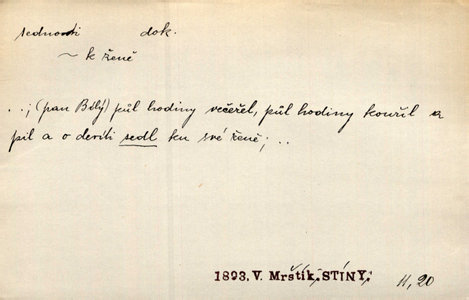 sednouti dok.
~ k ženě
..; (pan Bílý) půl hodiny večeřel, půl hodiny kouřil a
pil a o devíti sedl ku své ženě; ..
1893, V. Mrštík, STÍNY, 11, 20